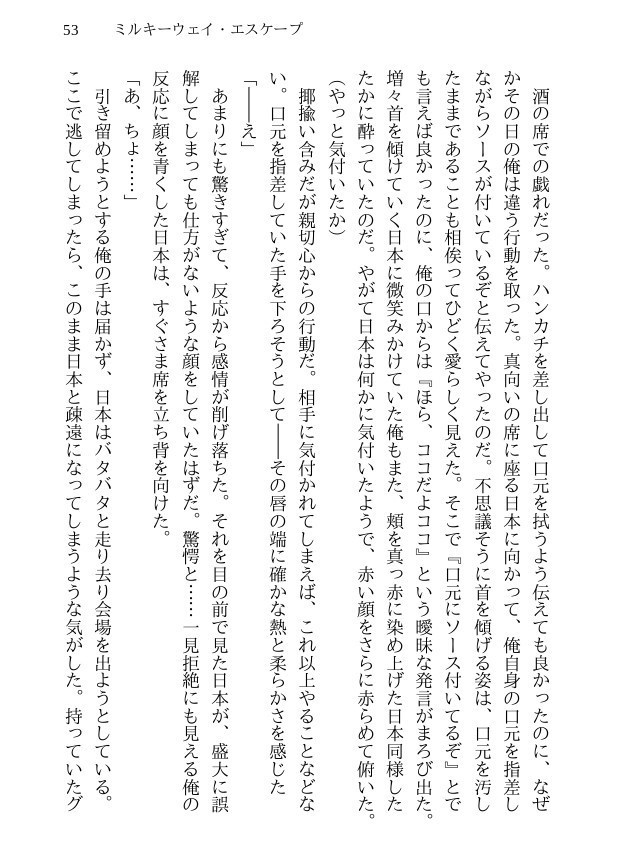 53 ミルキーウェイ・エスケープ
酒の席での戯れだった。ハンカチを差し出して口元を拭うよう伝えても良かったのに、なぜ
かその日の俺は違う行動を取った。真向いの席に座る日本に向かって、俺自身の口元を指差し
ながらソースが付いているぞと伝えてやったのだ。不思議そうに首を傾げる姿は、口元を汚し
たままであることも相俟ってひどく愛らしく見えた。そこで『口元にソース付いてるぞ』とで
も言えば良かったのに、俺の口からは『ほら、ココだよココ』という曖昧な発言がまろび出た。
増々首を傾けていく日本に微笑みかけていた俺もまた、頬を真っ赤に染め上げた日本同様した
たかに酔っていたのだ。やがて日本は何かに気付いたようで、赤い顔をさらに赤らめて俯いた。
(やっと気付いたか)
揶揄い含みだが親切心からの行動だ。相手に気付かれてしまえば、これ以上やることなどな
い。口元を指差していた手を下ろそうとして――その唇の端に確かな熱と柔らかさを感じた
「――え」
あまりにも驚きすぎて、反応から感情が削げ落ちた。それを目の前で見た日本が、盛大に誤
解してしまっても仕方がないような顔をしていたはずだ。驚愕と……一見拒絶にも見える俺の
反応に顔を青くした日本は、すぐさま席を立ち背を向けた。
「あ、ちょ……」
引き留めようとする俺の手は届かず、日本はバタバタと走り去り会場を出ようとしている。
ここで逃してしまったら、このまま日本と疎遠になってしまうような気がした。持っていたグ